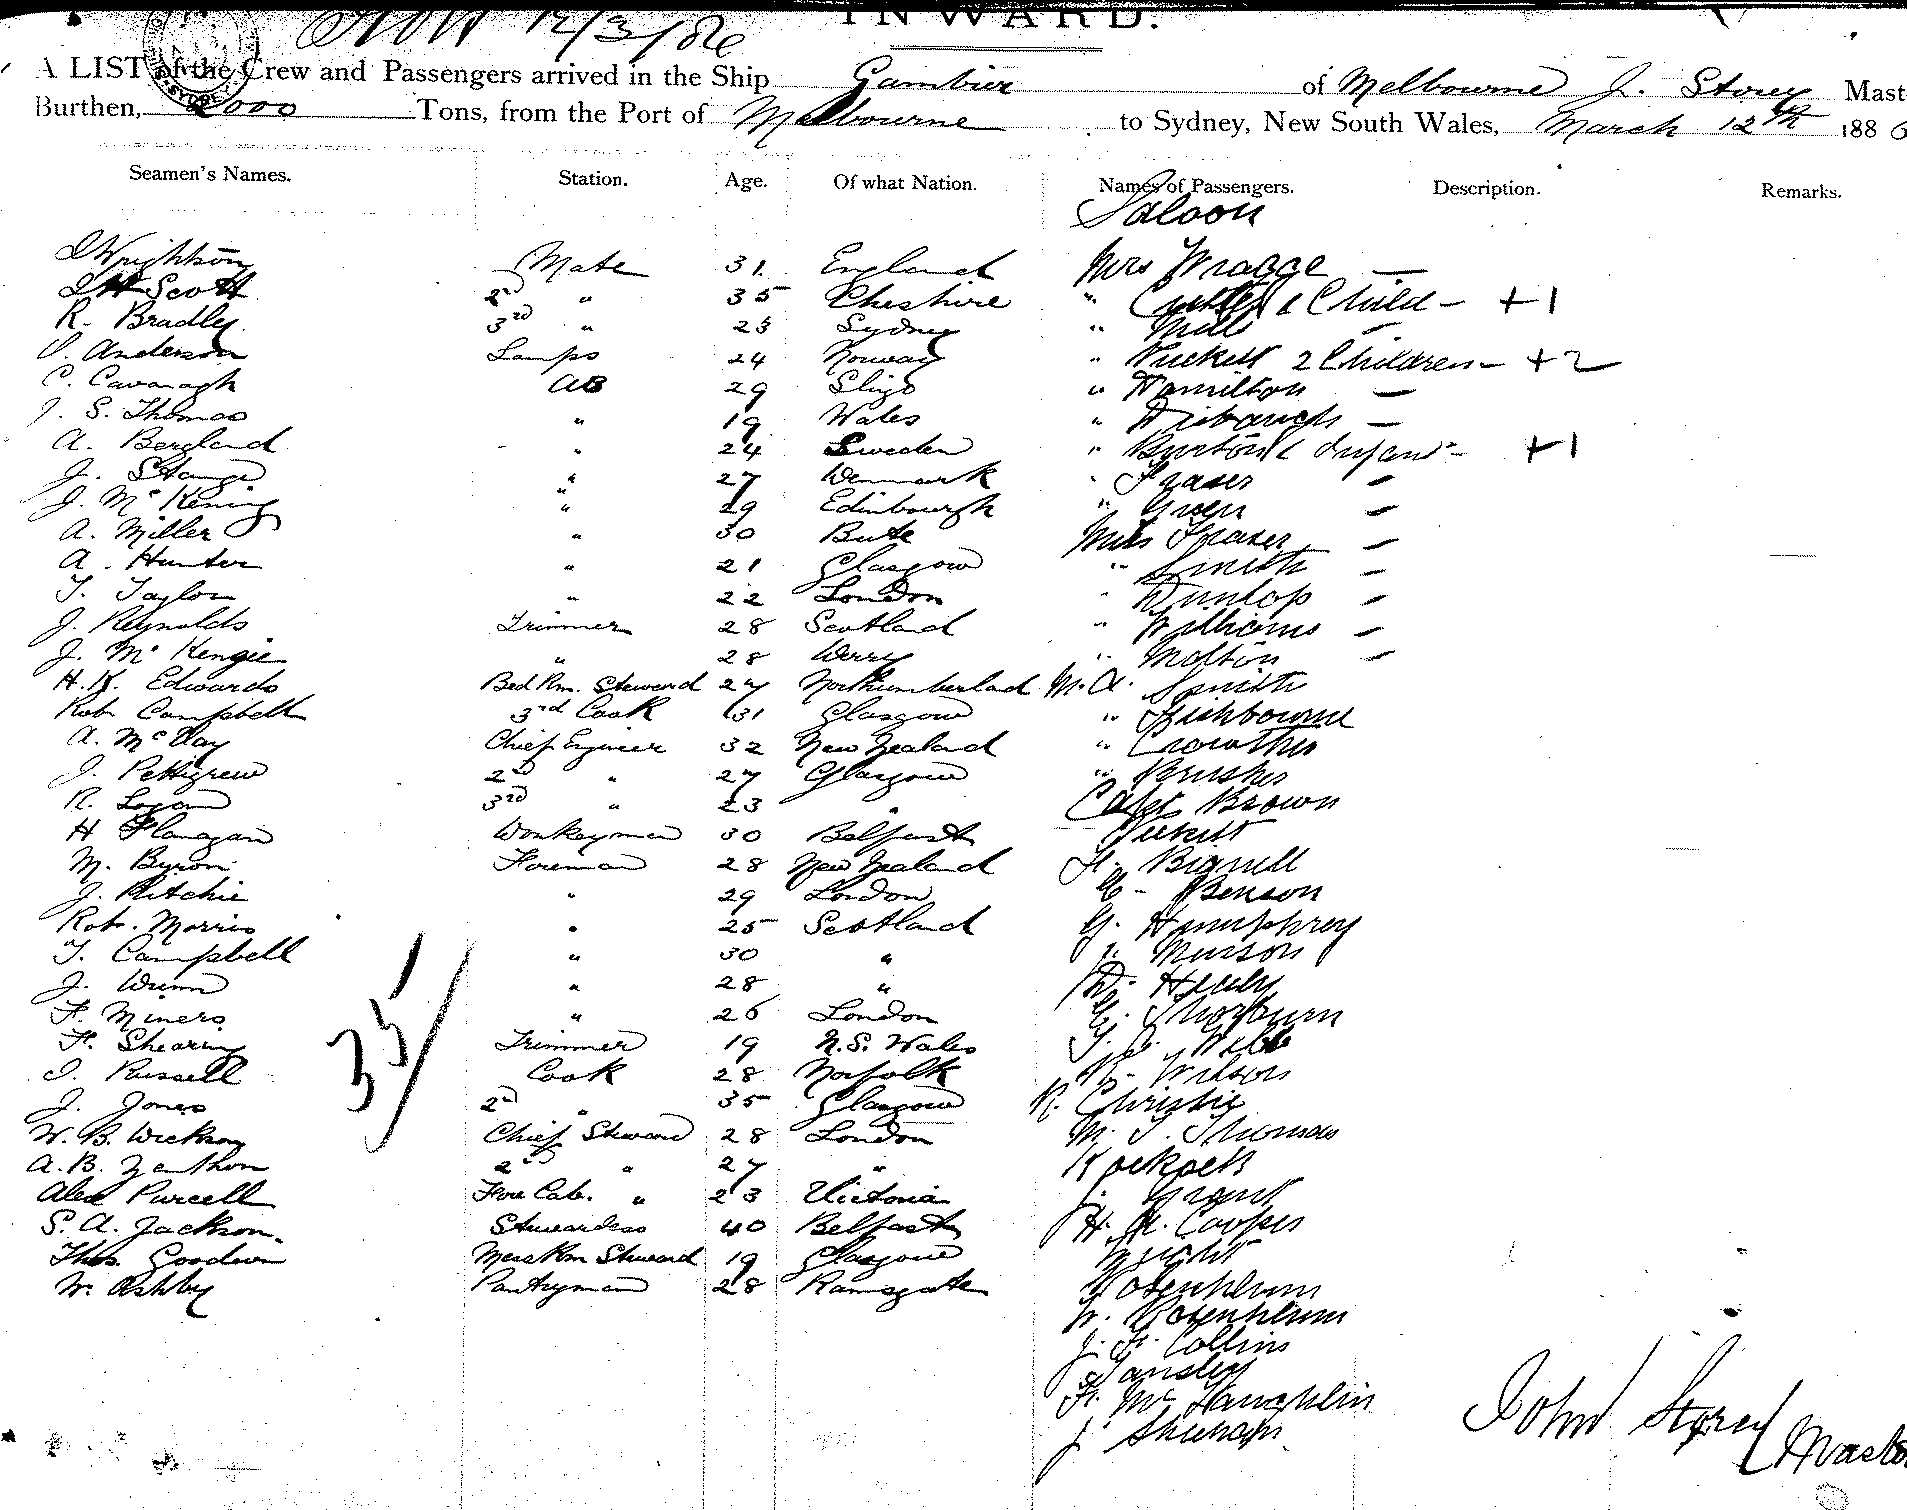 12/3/86
INWARD.
A LIST of the Crew and Passengers arrived in the Ship Gambier of Melbourne J. Storey Mast
Burthen, 2000 Tons, from the Port of Melbourne to Sydney, New South Wales, March 12th 1886
Seamen's Names. Station. Age. Of what Nation. Names of Passengers. Description. Remarks.
Saloon
Wrightson Mate 31 England Mrs Wragge —
Scott 2nd " 35 Cheshire " & Child — +1
R. Bradley 3rd " 23 Sydney " Mill –
Anderson Lamps 24 Norway " Tuckett 2 Children — +2
C. Cavanagh AB 29 Sligo " Hamilton —
J. S. Thomas " 19 Wales " —
A. Bergland " 24 Sweden " Burton & Infant – +1
J. Stange " 27 Denmark " Fraser –
J. Mc Kening " 29 Edinbourgh " Green –
A. Miller " 30 Bute Miss Fraser –
A. Hunter " 21 Glasgow " Smith –
T. Taylor " 22 London " Dunlop –
J. Reynolds Trimmer 28 Scotland " Williams –
J. Mc Kengie " 28 Derry " Molton –
H. K. Edwards Bed Rm. Steward 27 Northumberland M. A. Smith
Rob Campbell 3rd Cook 31 Glasgow " Fishbourne
A. Mc Vay Chief Engineer 32 New Zealand " Crowther
J. Pettigrew 2nd " 27 Glasgow "
R. Logan 3rd " 23 " Capt Brown
H Flanagan Donkeyman 30 Belfast Tuckett
M. Byron Foreman 28 New Zealand H. Bignell
J. Ritchie " 29 London Benson
Rob. Morris " 25 Scotland G. Humphrey
T. Campbell " 30 " J. Munson
J. Dunn " 28 " D. Healy
F. Miners " 26 London G. Thorburn
F. Shearing Trimmer 19 N.S. Wales
Russell Cook 28 Norfolk R. Wilson
J. Jones 2nd " 35 Glasgow R. Christie
W. B. Dickson Chief Steward 28 London M. J. Thomas
A. B. Zenthon 2nd " 27 "
Alex Purcell Fore Cab. " 23 Victoria J. Grant
S. A. Jackson. Stewardess 40 Belfast H. H. Cooper
Thos Goodwin Messrm Steward 19 Glasgow Wright
W. Ashby Pantryman 28 Ramsgate Rosenblum
W. Rosenblum
J. H. Collins
Tansley
F. Mc Laughlin
J Sheehan
35/
John Storey
Master